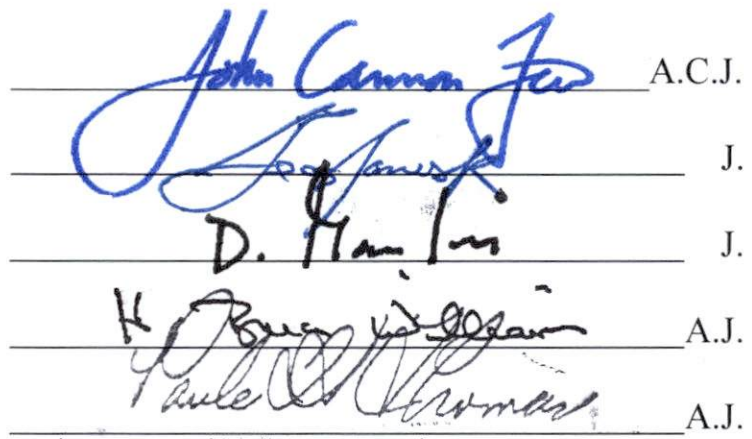 John Cannon Few A.C.J.
James J.
D. J.
H Bruce Williams A.J.
Paula H. Thomas A.J.